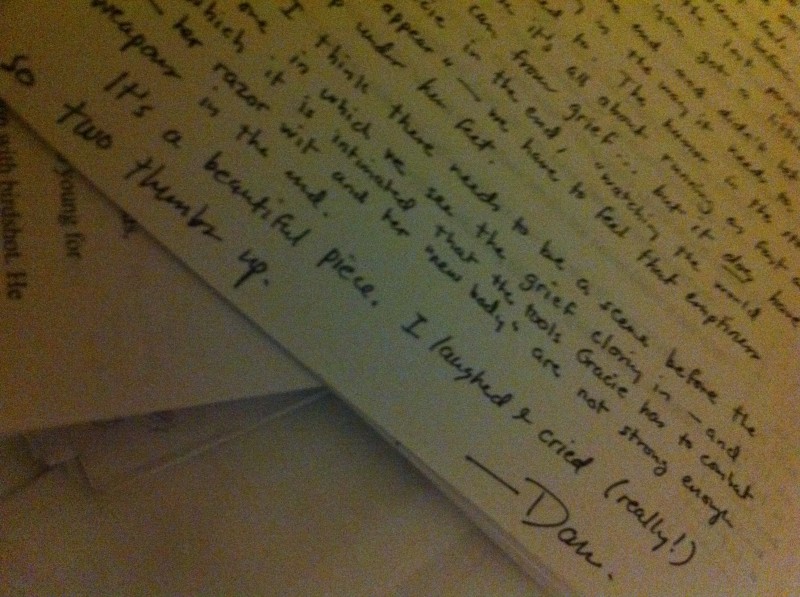 end and didn't let
in the way it needs to
to. The humor in the
it's all about running as fast
can from grief... but it does have
in the end, "watching the world
appear" — we have to feel that emptiness
under her feet.
I think there needs to be a scene before the
one in which we see the grief closing in — and
which it is intimated that the tools Gracie has to combat
— her razor wit and her "new body" are not strong enough
weapons in the end.
It's a beautiful piece. I laughed & cried (really!)
So two thumbs up.
— Dan.
young for
with birdshot. He